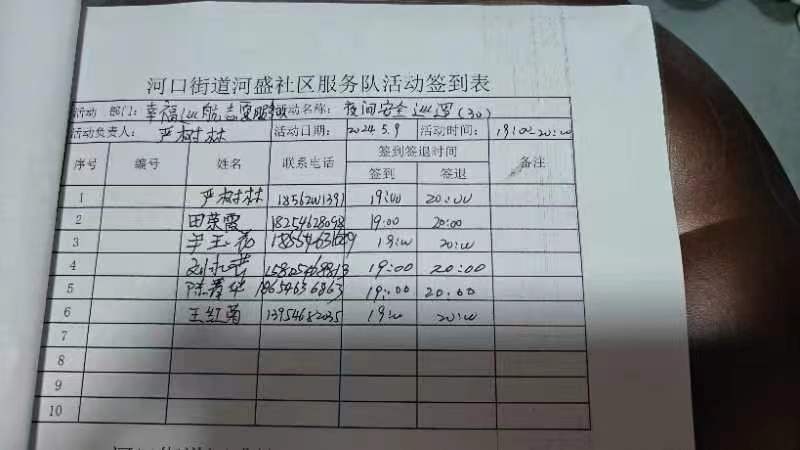 河口街道河盛社区服务队活动签到表
活动 部门: 幸福 志愿服务 活动名称: 夜间安全巡逻(30)
活动负责人: 严树林 活动日期: 2024.5.9 活动时间: 19:00-20:00
序号 编号 姓名 联系电话 签到签退时间 备注
签到 签退
1 严树林 18562001391 19:00 20:00
2 田荣霞 18254628098 19:00 20:00
3 19:00 20:00
4 19:00 20:00
5 19:00 20:00
6 王红菊 13954682035 19:00 20:00
7
8
9
10